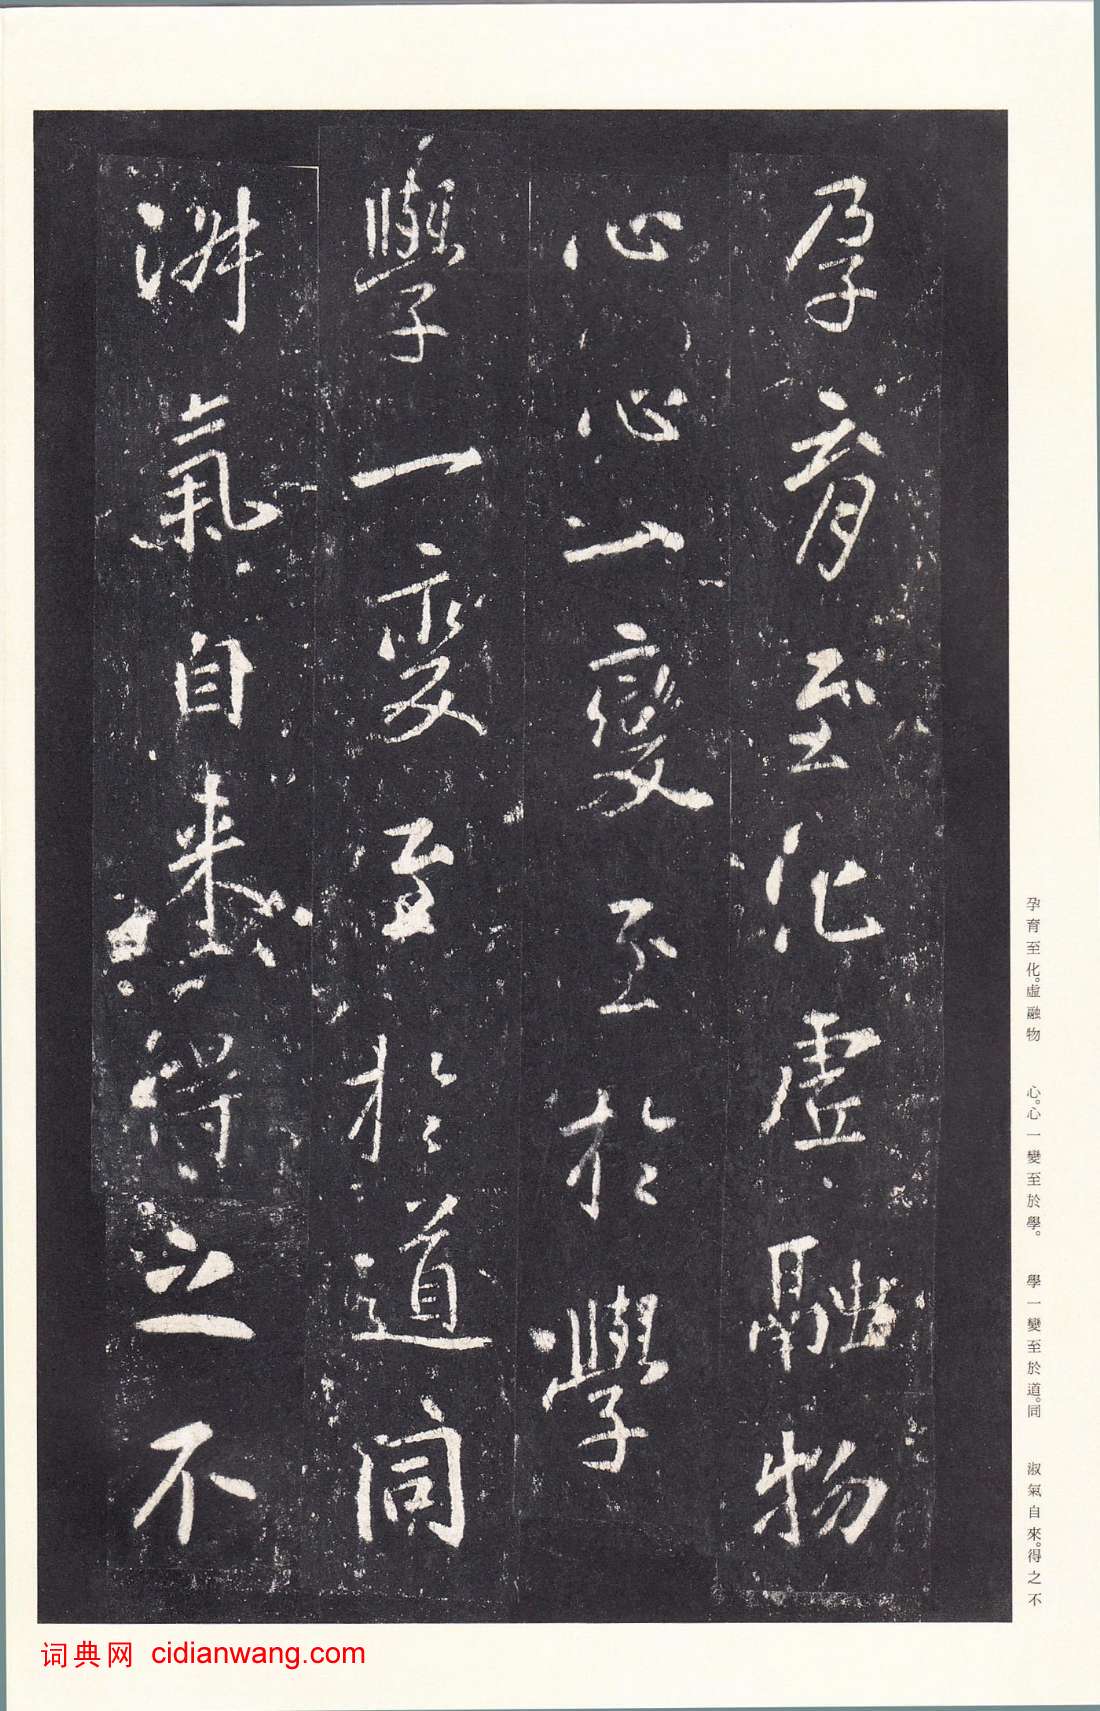 孕育至化虛融物
心心一變至於學
學一變至於道同
淋氣自来得之不
孕育至化。虛融物
心。心一變至於學。
學一變至於道。同
淑氣自來。得之不
词典网 cidianwang.com